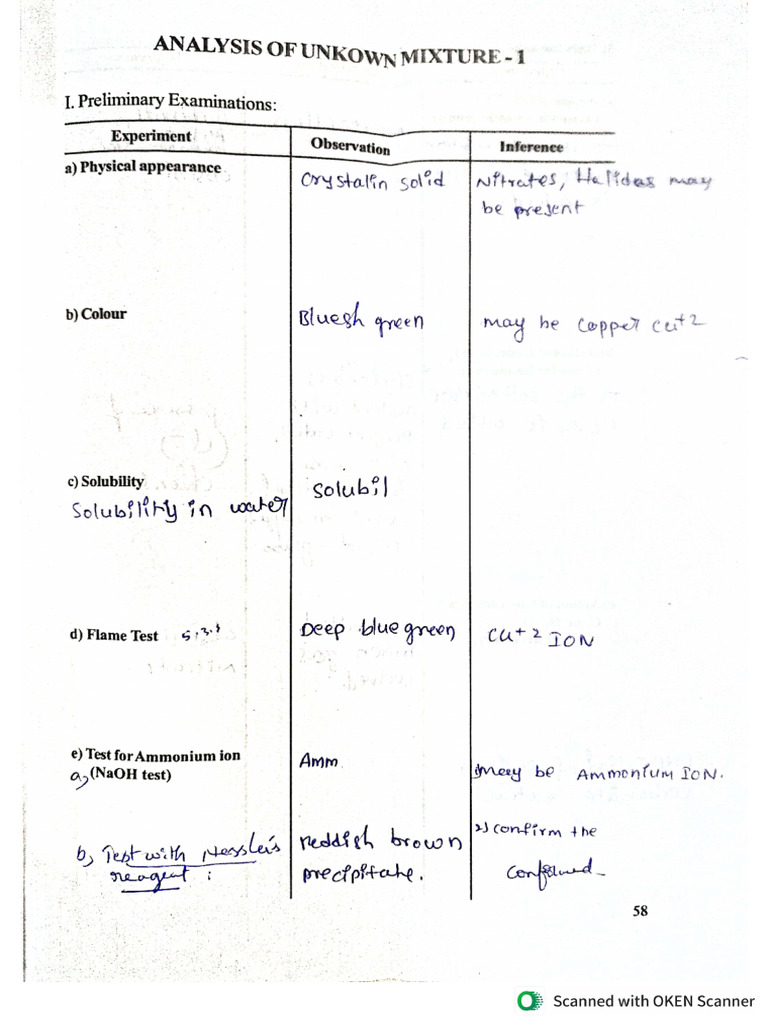 ANALYSIS OF UNKOWN MIXTURE - 1
I. Preliminary Examinations:
Experiment Observation Inference
a) Physical appearance Crystalin solid Nitrates, Halides may
be present
b) Colour Bluesh green may be copper cu+2
c) Solubility
Solubility in water Solubil
d) Flame Test Deep blue green Cu+2 ION
e) Test for Ammonium ion Amm.
a) (NaOH test) may be Ammonium ION.
b) Test with Nessler's reddish brown 2) confirm the
reagent : precipitate.
58
Scanned with OKEN Scanner